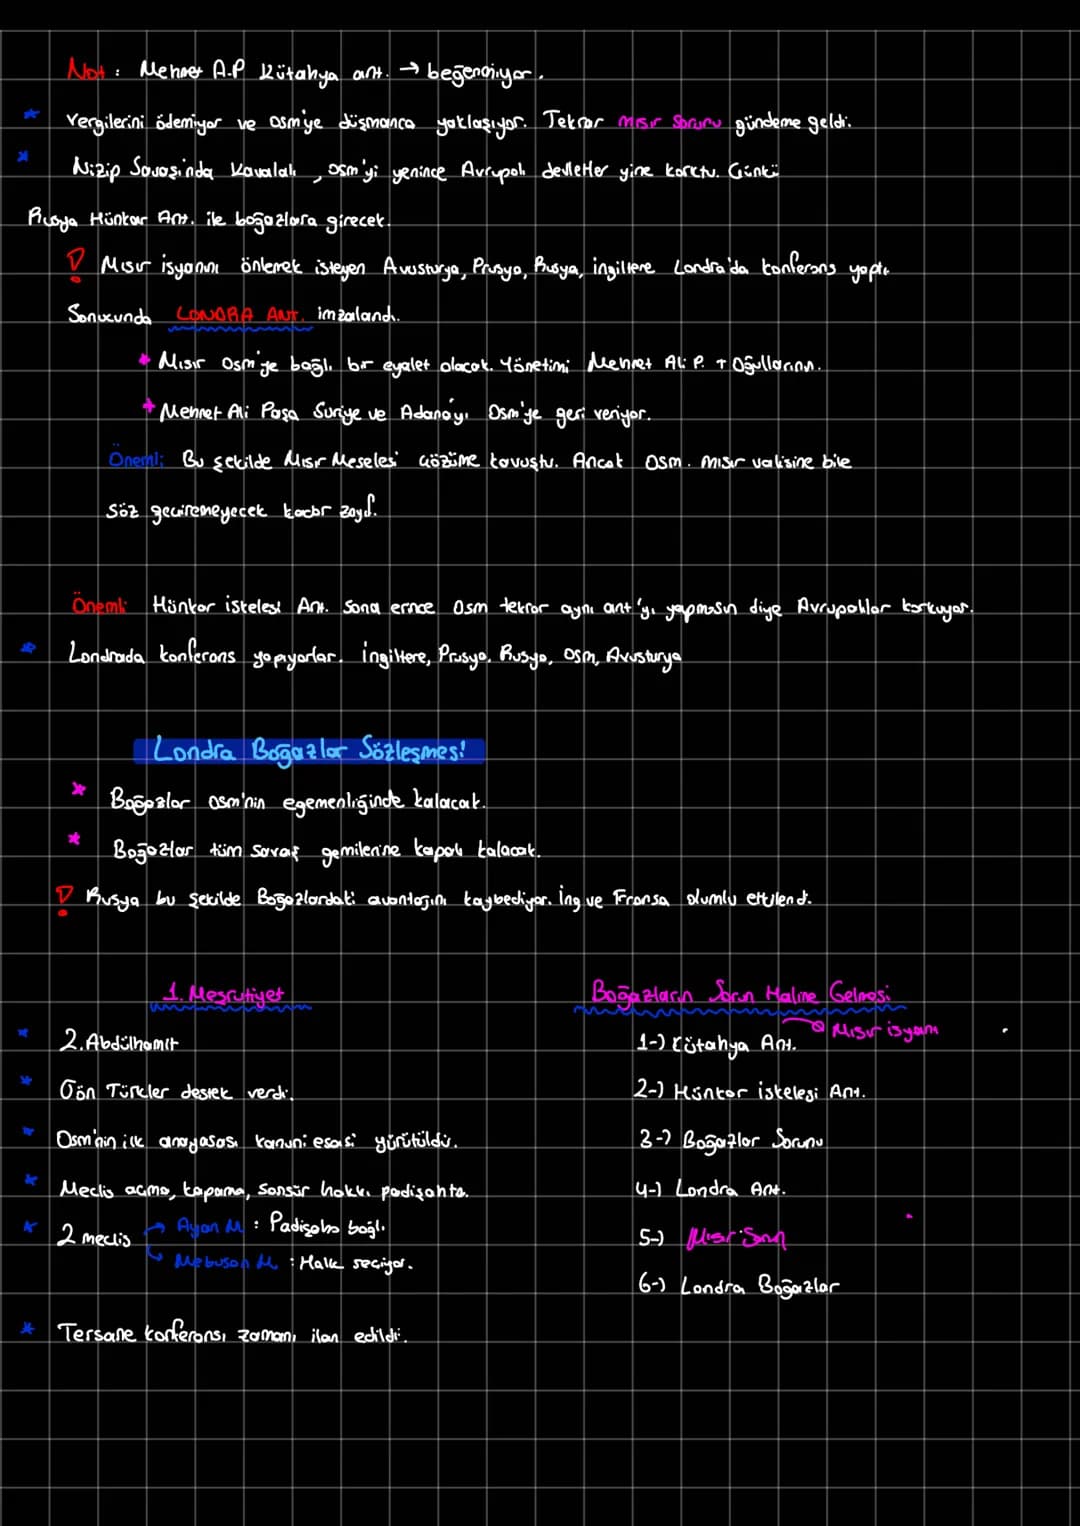 Not : Mehmet A.P Kütahya ant. → beğenmiyor.
* Vergilerini ödemiyor ve Osm'ye düşmanca yaklaşıyor. Tekrar Mısır Sorunu gündeme geldi.
* Nizip Savaşında Kavalalı, Osm'yi yenince Avrupalı devletler yine korktu. Çünkü
Rusya Hünkar Ant. ile boğazlara girecek.
! Mısır isyanını önlemek isteyen Avusturya, Prusya, Rusya, İngiltere Londra'da konferans yaptı.
Sonucunda LONDRA ANT. imzalandı.
* Mısır Osm'ye bağlı bir eyalet olacak. Yönetimi Mehmet Ali P. + Oğullarının.
* Mehmet Ali Paşa Suriye ve Adana'yı Osm'ye geri veriyor.
Önemli: Bu şekilde Mısır Meselesi çözüme kavuştu. Ancak Osm. Mısır valisine bile
söz geçiremeyecek kadar zayıf.
Önemli: Hünkar iskelesi Ant. sona erince Osm tekrar aynı ant'yı yapmasın diye Avrupalılar korkuyor.
* Londrada konferans yapıyorlar. İngiltere, Prusya, Rusya, Osm, Avusturya
Londra Boğazlar Sözleşmesi
* Boğazlar Osm'nin egemenliğinde kalacak.
* Boğazlar tüm savaş gemilerine kapalı kalacak.
! Rusya bu şekilde Boğazlardaki avantajını kaybediyor. İng ve Fransa olumlu etkilendi.
1. Meşrutiyet
* 2.Abdülhamit
* Jön Türkler destek verdi.
* Osm'nin ilk anayasası kanuni esasi yürütüldü.
* Meclis açma, kapama, sansür hakkı padişahta.
* 2 meclis → Ayan M : Padişaha bağlı.
→ Mebusan M. : Halk seçiyor.
* Tersane konferansı zamanı ilan edildi.
Boğazların Sorun Haline Gelmesi
→ Mısır isyanı
1-) Kütahya Ant.
2-) Hünkar iskelesi Ant.
3-) Boğazlar Sorunu
4-) Londra Ant.
5-) Mısır Sorun
6-) Londra Boğazlar